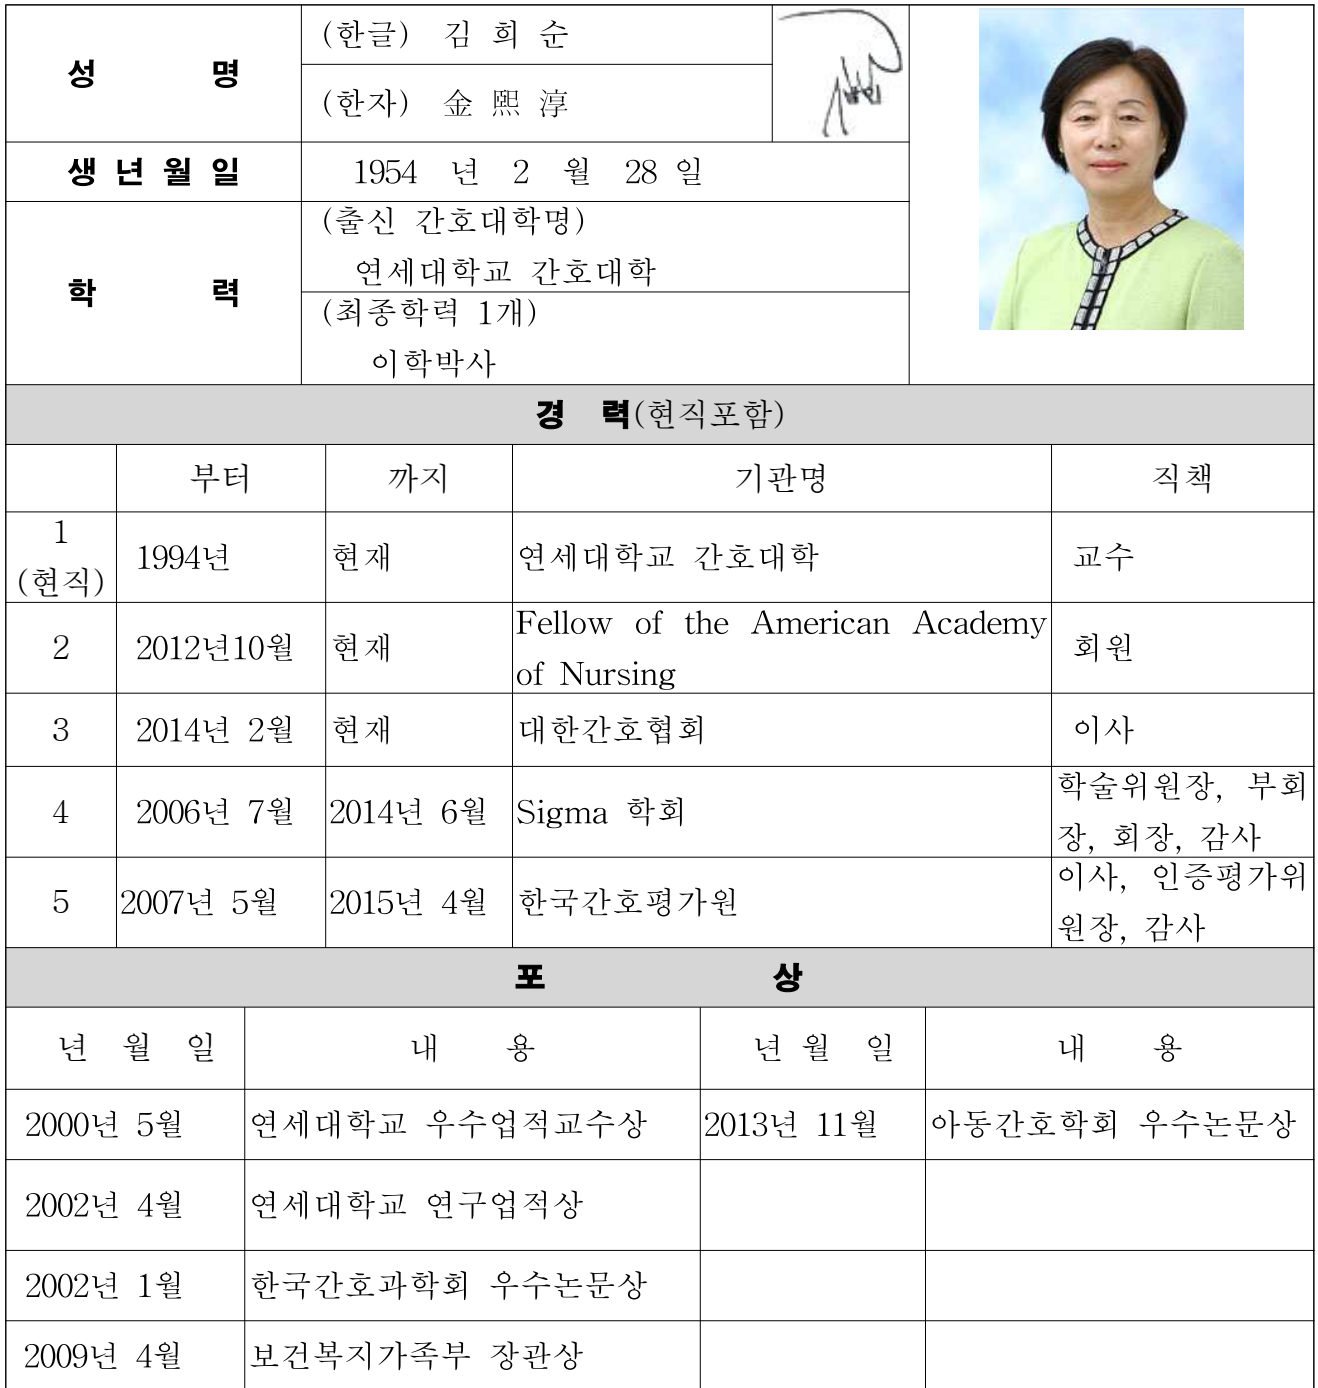 성 명
(한글) 김 희 순
(한자) 金 熙 淳
생 년 월 일
1954 년 2 월 28 일
학 력
(출신 간호대학명)
연세대학교 간호대학
(최종학력 1개)
이학박사
경 력(현직포함)
부터 까지 기관명 직책
1
(현직)
1994년 현재 연세대학교 간호대학 교수
2 2012년10월 현재 Fellow of the American Academy
of Nursing
회원
3 2014년 2월 현재 대한간호협회 이사
4 2006년 7월 2014년 6월 Sigma 학회 학술위원장, 부회
장, 회장, 감사
5 2007년 5월 2015년 4월 한국간호평가원 이사, 인증평가위
원장, 감사
포 상
년 월 일 내 용 년 월 일 내 용
2000년 5월 연세대학교 우수업적교수상 2013년 11월 아동간호학회 우수논문상
2002년 4월 연세대학교 연구업적상
2002년 1월 한국간호과학회 우수논문상
2009년 4월 보건복지가족부 장관상